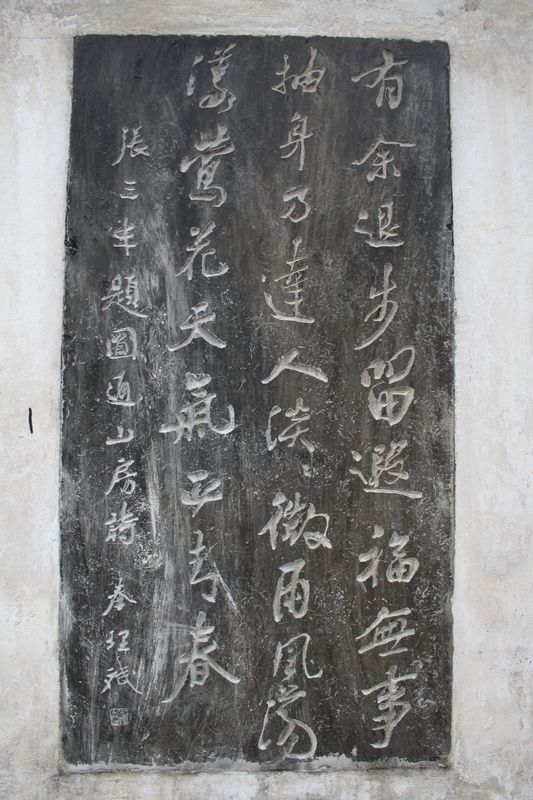 有余退步留遐福無事
抽身乃達人淡々微雨風蕩
漾鶯花天氣正青春
張三丰題圓通山房詩 秦